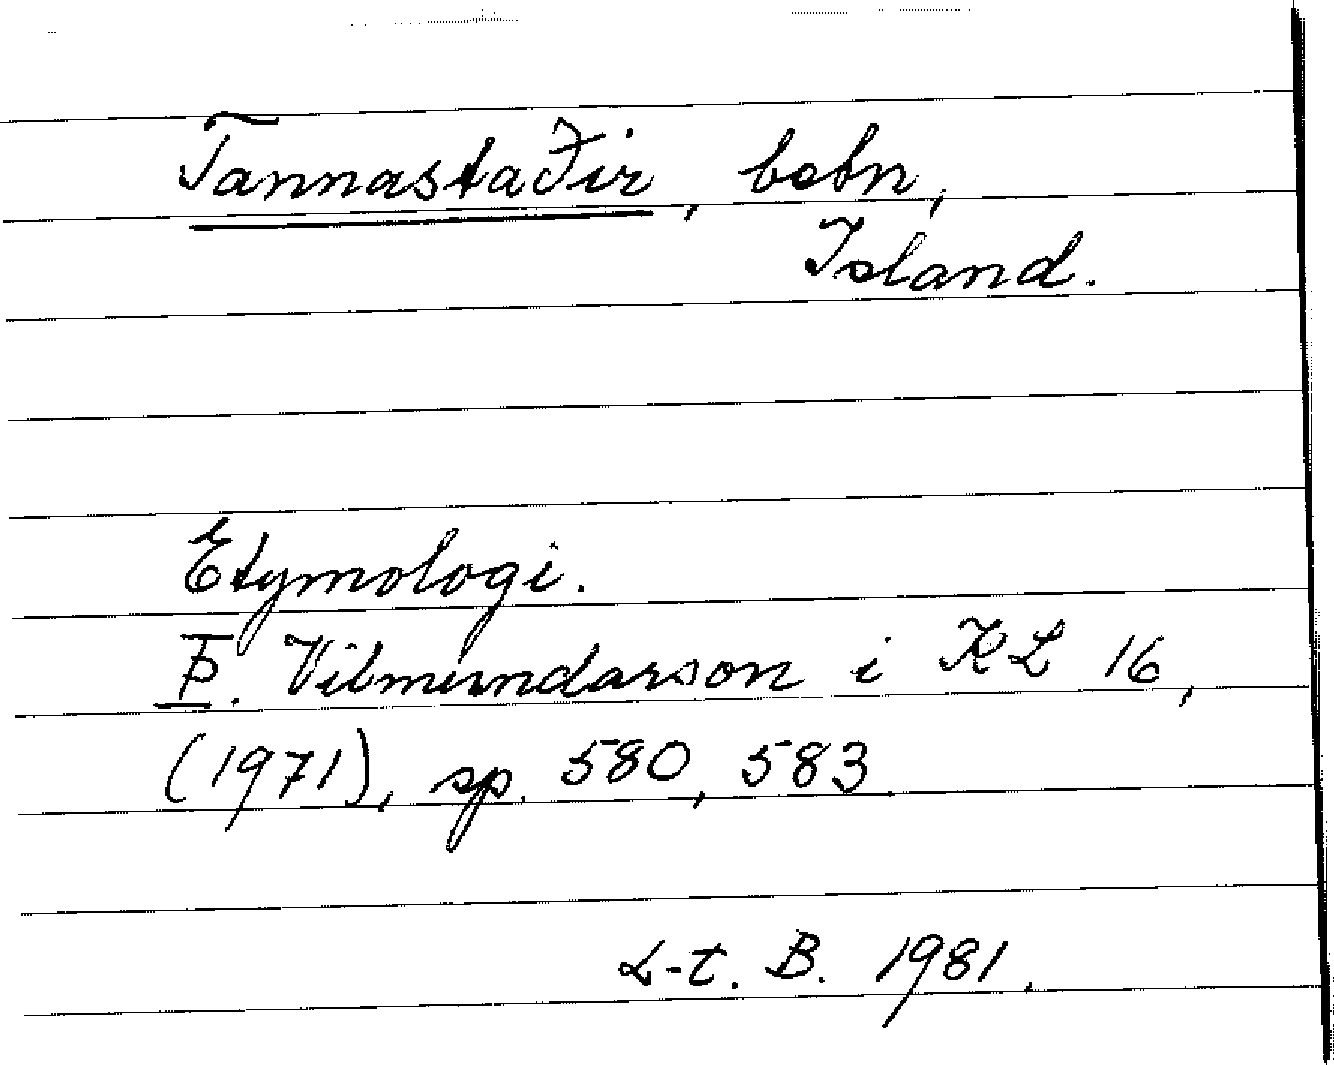 Tannastaðir, bebn,
Island.
Etymologi.
Þ. Vilmundarson i KL 16,
(1971), sp. 580, 583.
L-t. B. 1981.